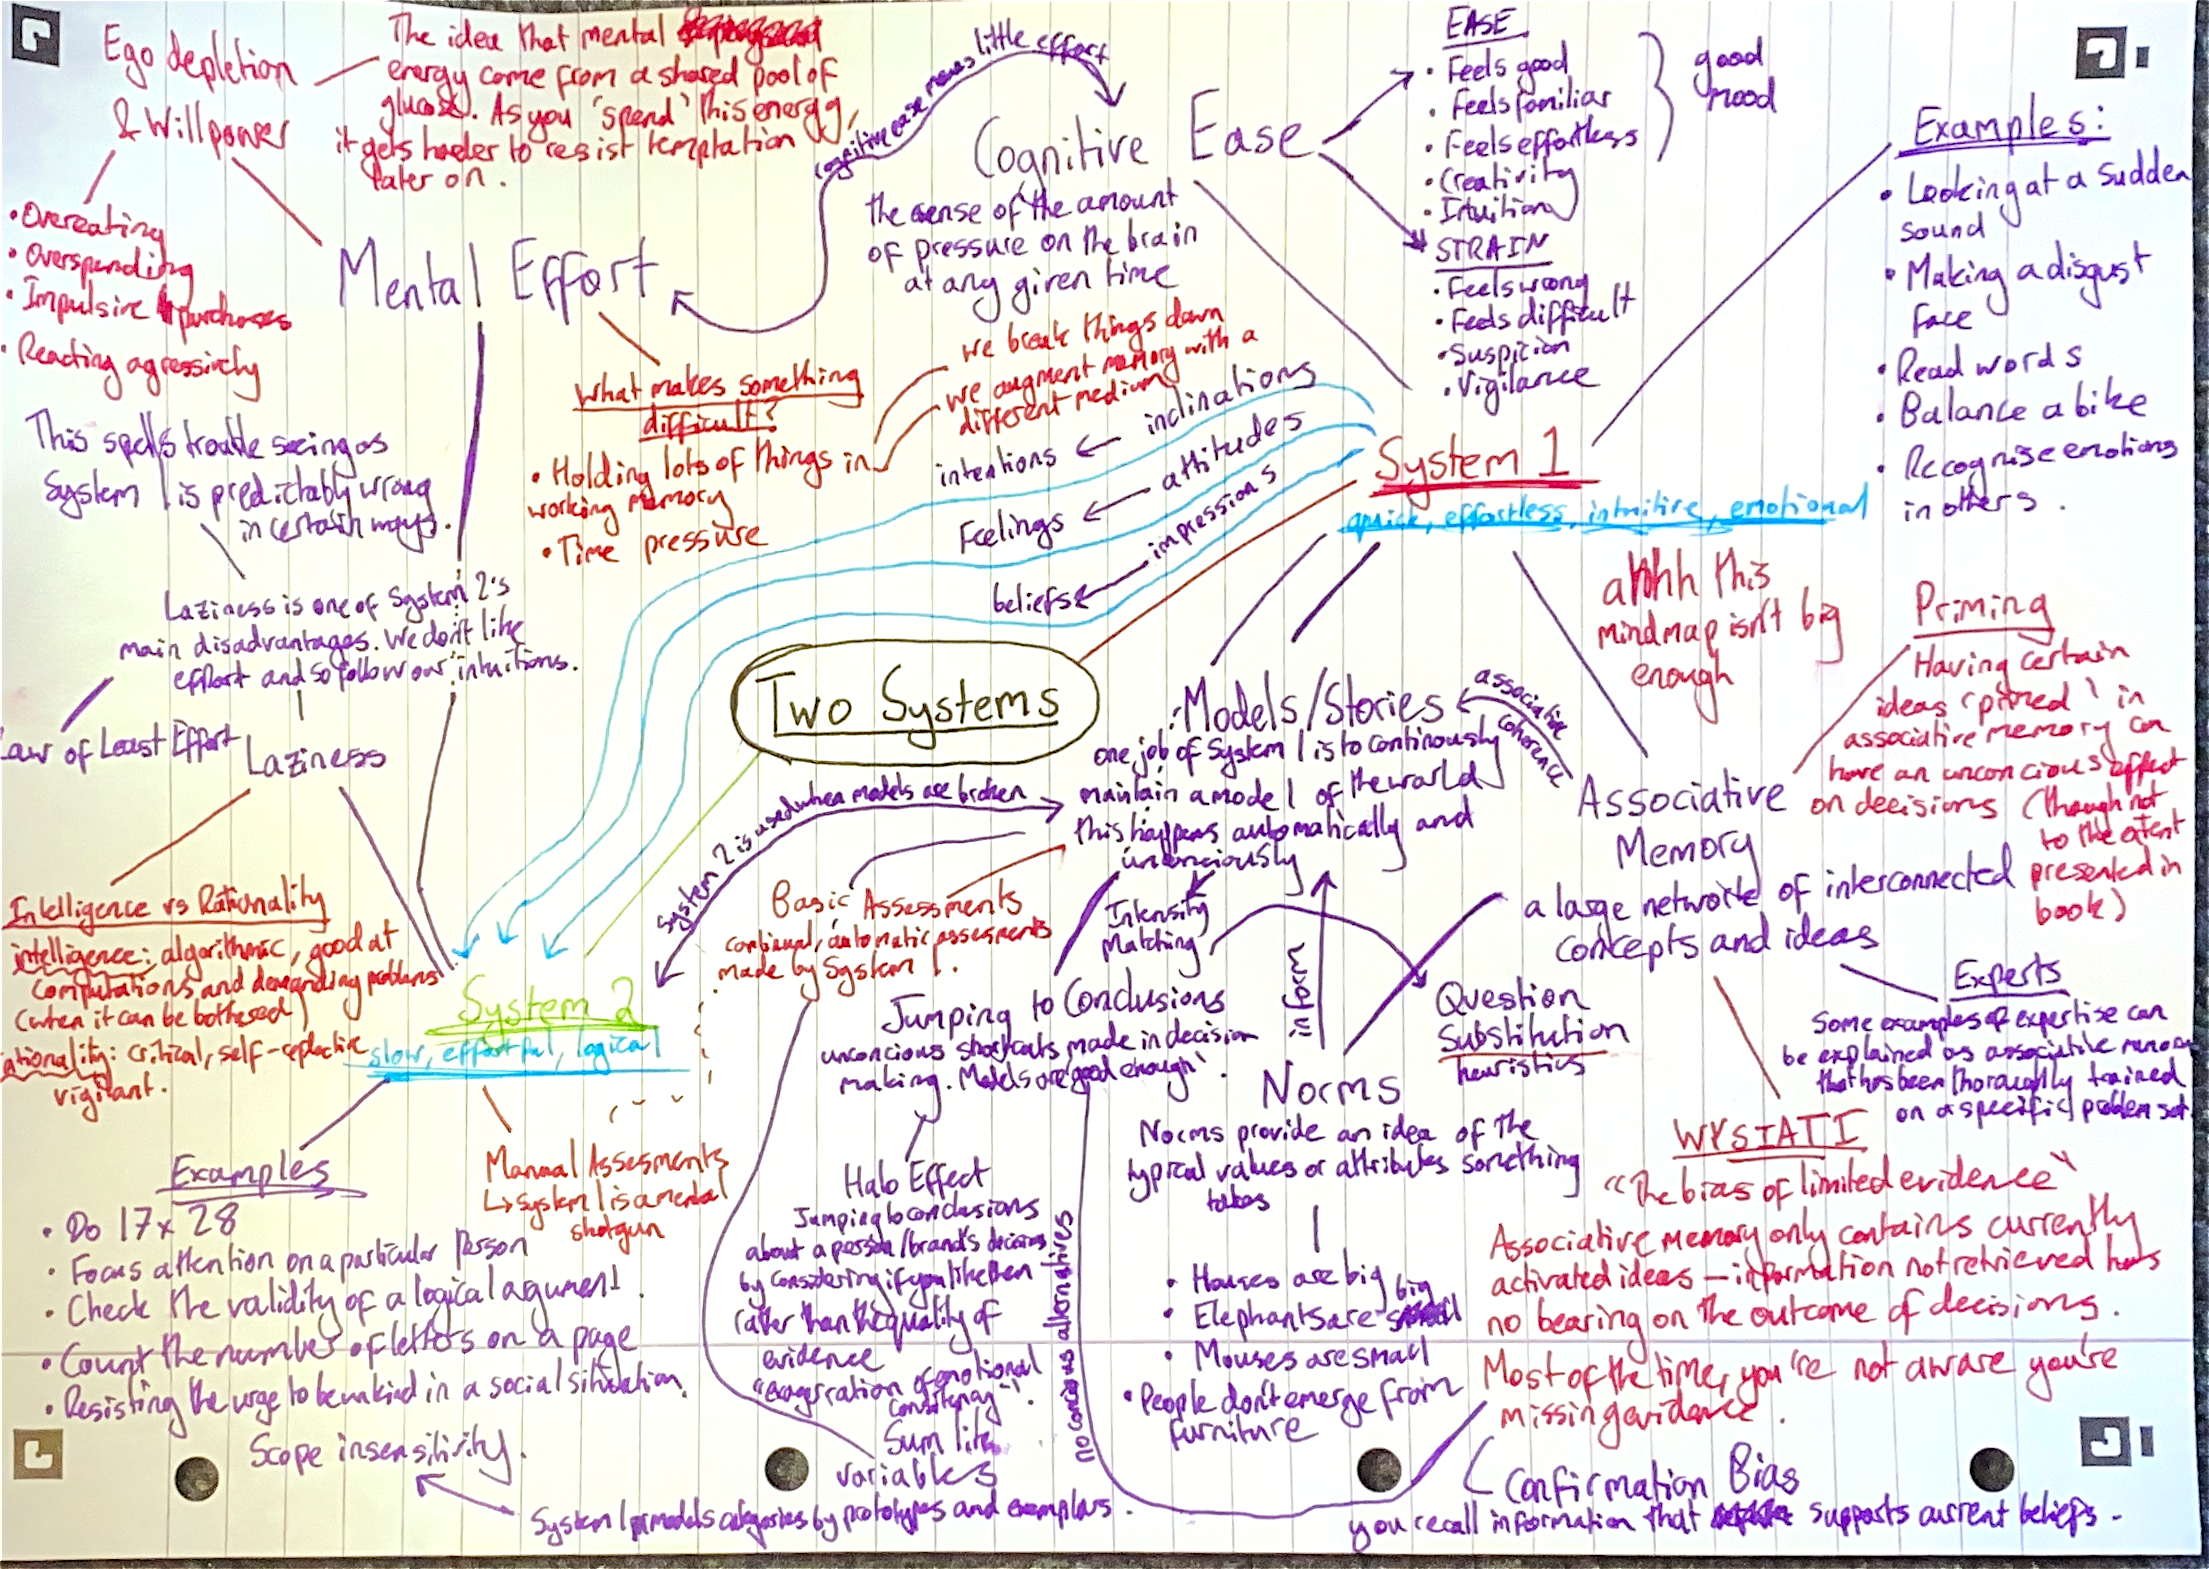 Ego depletion
& Willpower
The idea that mental
energy come from a shared pool of
glucose. As you 'spend' this energy,
it gets harder to resist temptation
later on.
• Overeating
• Overspending
• Impulsive purchases
• Reacting agressively
Mental Effort
cognitive ease means little effort
Cognitive Ease
the sense of the amount
of pressure on the brain
at any given time
EASE
• Feels good
• Feels familiar
• Feels effortless
• Creativity
• Intuition
good
mood
STRAIN
• Feels wrong
• Feels difficult
• Suspicion
• Vigilance
Examples:
• Looking at a sudden
sound
• Making a disgust
face
• Read words
• Balance a bike
• Recognise emotions
in others.
What makes something
difficult?
• Holding lots of things in
working memory
• Time pressure
we break things down
we augment memory with a
different medium
intentions ← inclinations
Feelings ← attitudes
beliefs ← impressions
System 1
quick, effortless, intuitive, emotional
This spells trouble seeing as
System 1 is predictably wrong
in certain ways.
Laziness is one of System 2's
main disadvantages. We don't like
effort and so follow our intuitions.
Law of Least Effort
Laziness
Two Systems
ahhh this
mindmap isn't big
enough
Priming
Having certain
ideas 'primed' in
associative memory can
have an unconcious effect
on decisions (though not
to the extent
presented in
book)
Models/Stories
one job of System 1 is to continously
maintain a model of the world
this happens automatically and
unconciously
associative
coherence
System 2 is used when models are broken
Associative
Memory
a large network of interconnected
concepts and ideas
Intelligence vs Rationality
intelligence: algorithmic, good at
computations and demanding problems
(when it can be bothered)
rationality: critical, self-reflective
vigilant.
System 2
slow, effortful, logical
Basic Assessments
continual, automatic assesments
made by System 1.
Intensity
Matching
Jumping to Conclusions
unconcious shortcuts made in decision
making. Models are 'good enough'.
inform
Question
Substitution
heuristics
Experts
Some examples of expertise can
be explained as associative memory
that has been thoroughly trained
on a specific problem set
Norms
Norms provide an idea of the
typical values or attributes something
takes
• Houses are big
• Elephants are big
• Mouses are small
• People don't emerge from
furniture
WYSIATI
"The bias of limited evidence"
Associative memory only contains currently
activated ideas — information not retrieved has
no bearing on the outcome of decisions.
Most of the time, you're not aware you're
missing evidence.
Examples
• Do 17 x 28
• Focus attention on a particular person
• Check the validity of a logical argument.
• Count the number of letters on a page
• Resisting the urge to be unkind in a social situation.
Manual Assesments
↳ System 1 is a mental
shotgun
Halo Effect
Jumping to conclusions
about a person/brand's decisions
by considering if you like them
rather than the quality of
evidence
"exageration of emotional
consistency".
no concious alternatives
Sum like
variables
Scope insensitivity.
System 1 models categories by prototypes and exemplars.
Confirmation Bias
you recall information that supports current beliefs.